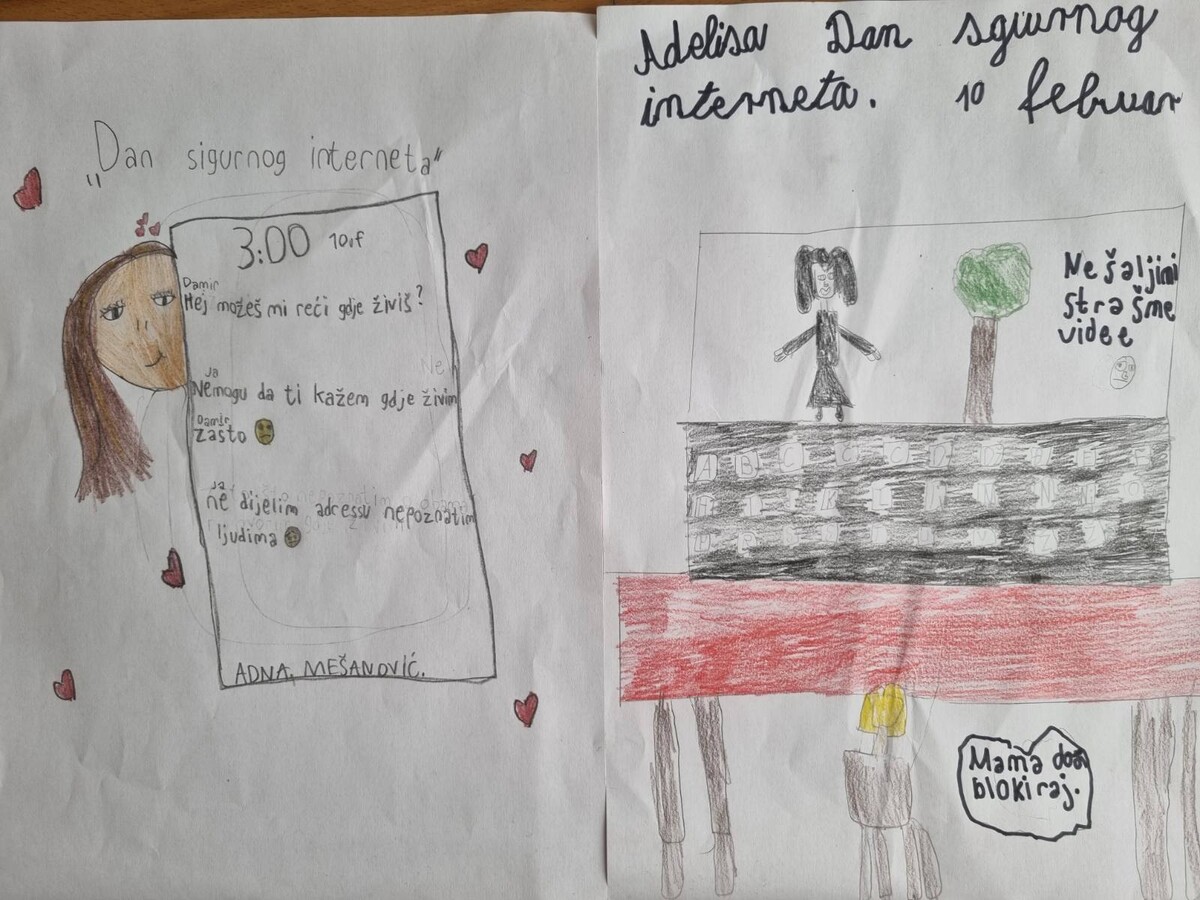 „Dan sigurnog interneta“
3:00 10.f
Damir
Hej možeš mi reći gdje živiš?
Ne
Ja
Nemogu da ti kažem gdje živim
Damir
zašto
Ja
ne dijelim adressu nepoznatim
ljudima
ADNA, MEŠANOVIĆ.
Adelisa Dan sgiurnog
interneta. 10 februar
Ne šaljimi
strašme
videe
Mama
blokiraj.